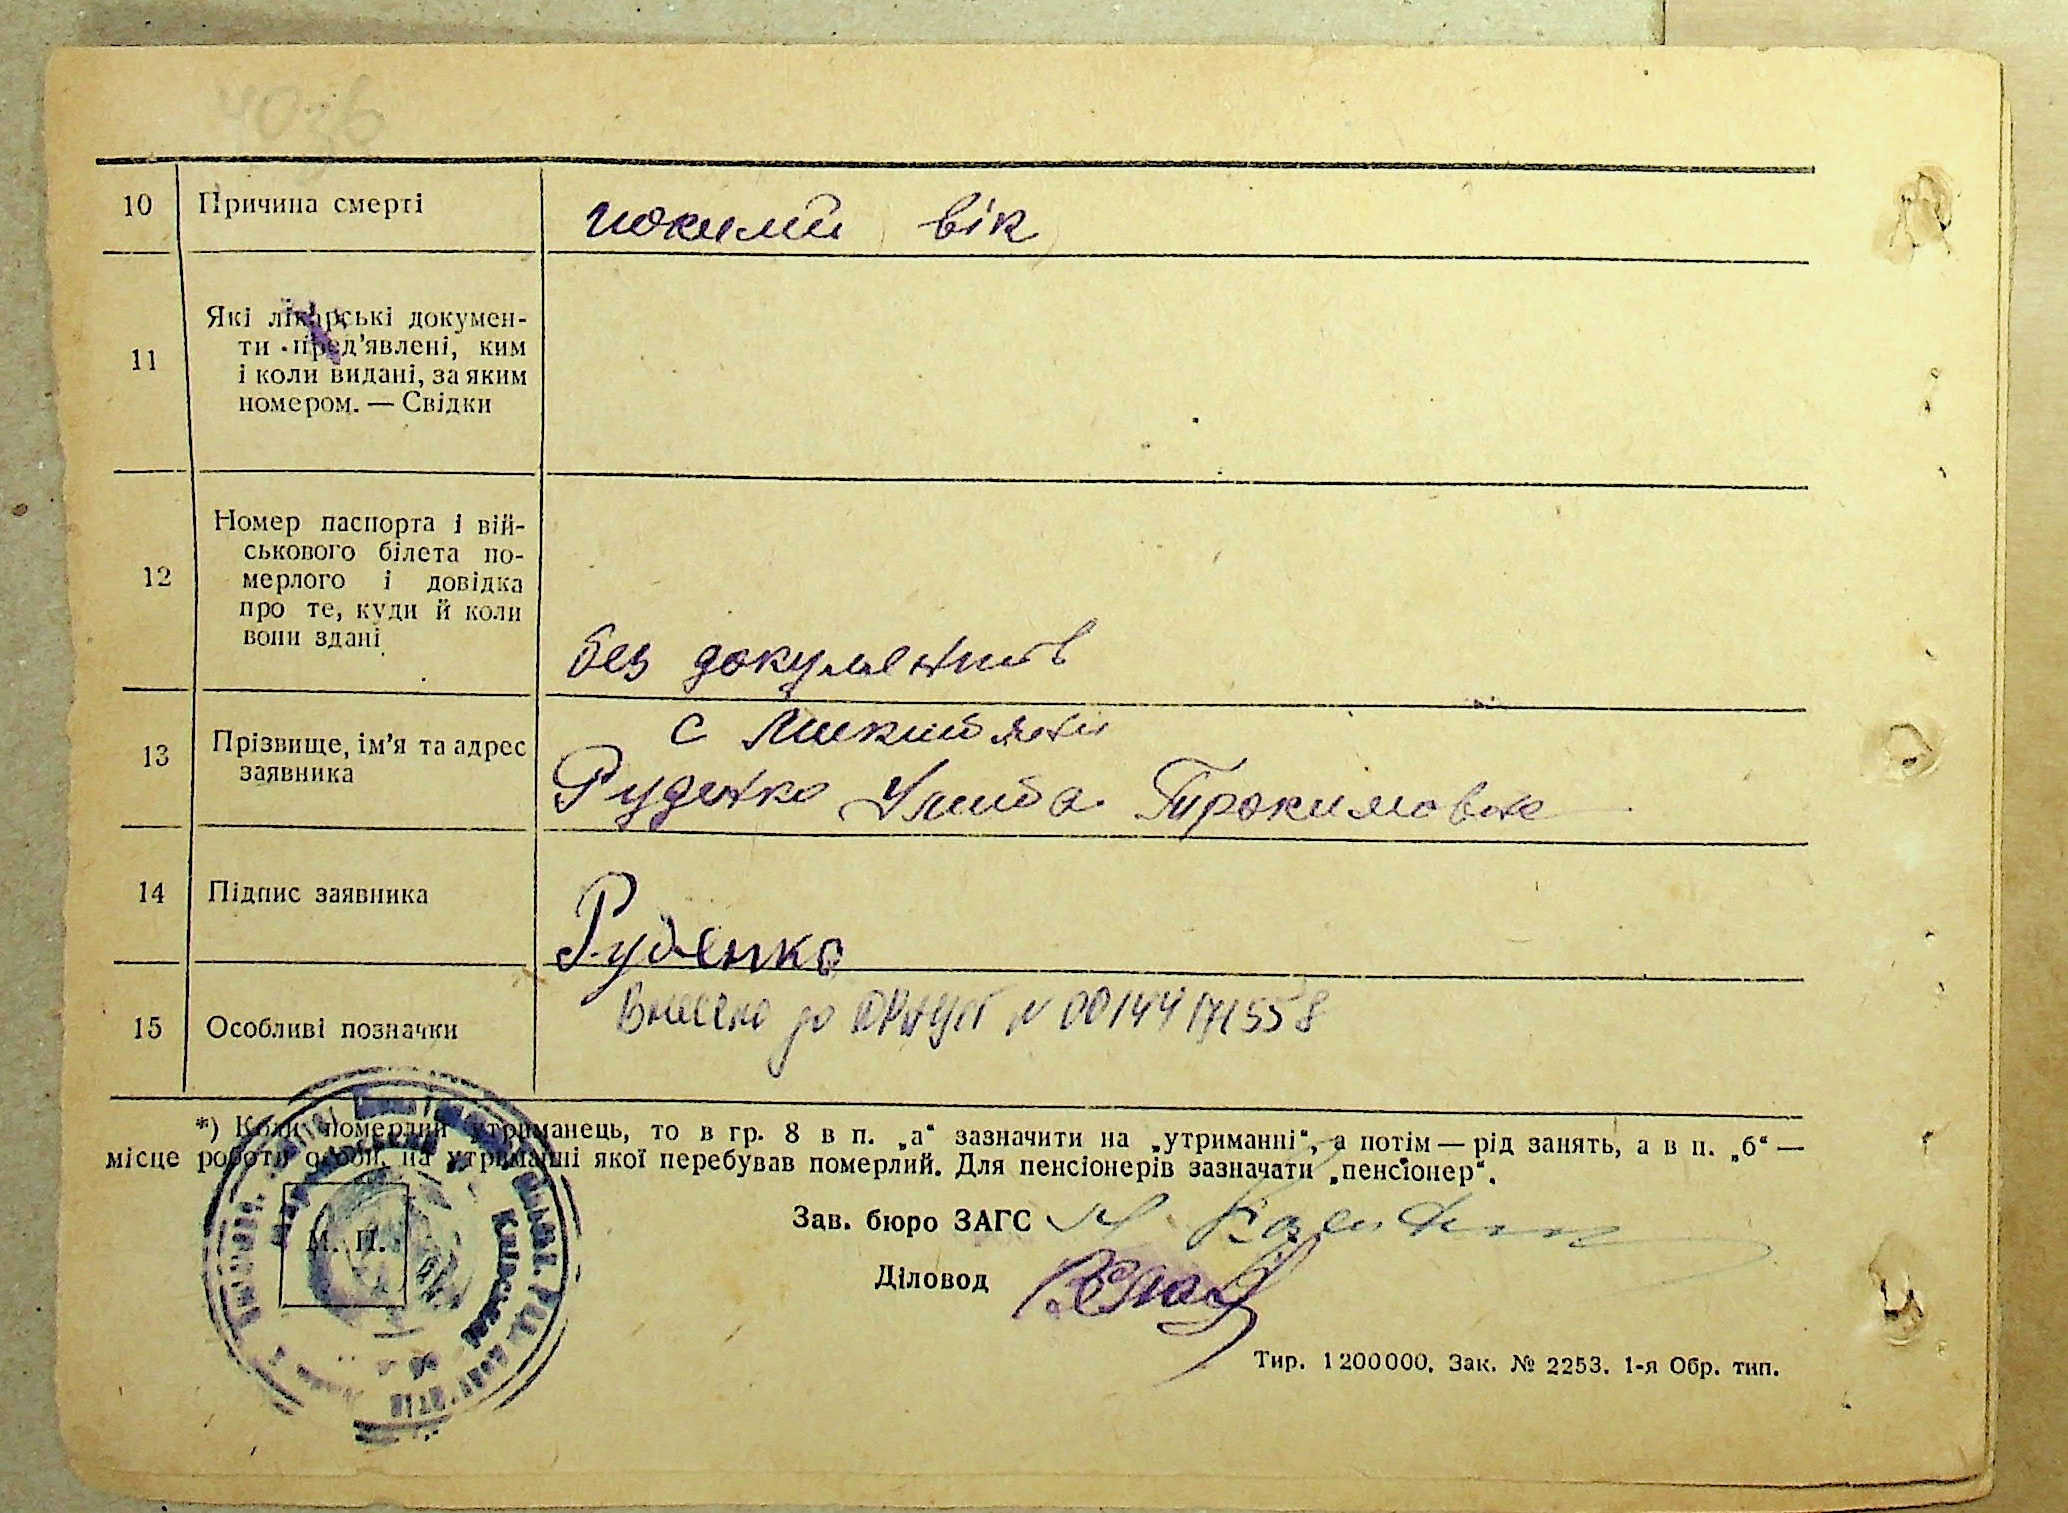 10 Причина смерті
похилий вік
11 Які лікарські докумен-
ти пред'явлені, ким
і коли видані, за яким
номером. — Свідки
12 Номер паспорта і вій-
ськового білета по-
мерлого і довідка
про те, куди й коли
вони здані
без документів
13 Прізвище, ім'я та адрес
заявника
с
Руденко Трохимовна
14 Підпис заявника
Руденко
15 Особливі позначки
Внесено до ДРАЦСГ № 00144171558
*) Коли померлий утриманець, то в гр. 8 в п. „а“ зазначити на „утриманні“, а потім — рід занять, а в п. „б“ —
місце роботи особи, на утриманні якої перебував померлий. Для пенсіонерів зазначати „пенсіонер“.
М. П.
Київської
Зав. бюро ЗАГС
Діловод
Тир. 1200000. Зак. № 2253. 1-я Обр. тип.